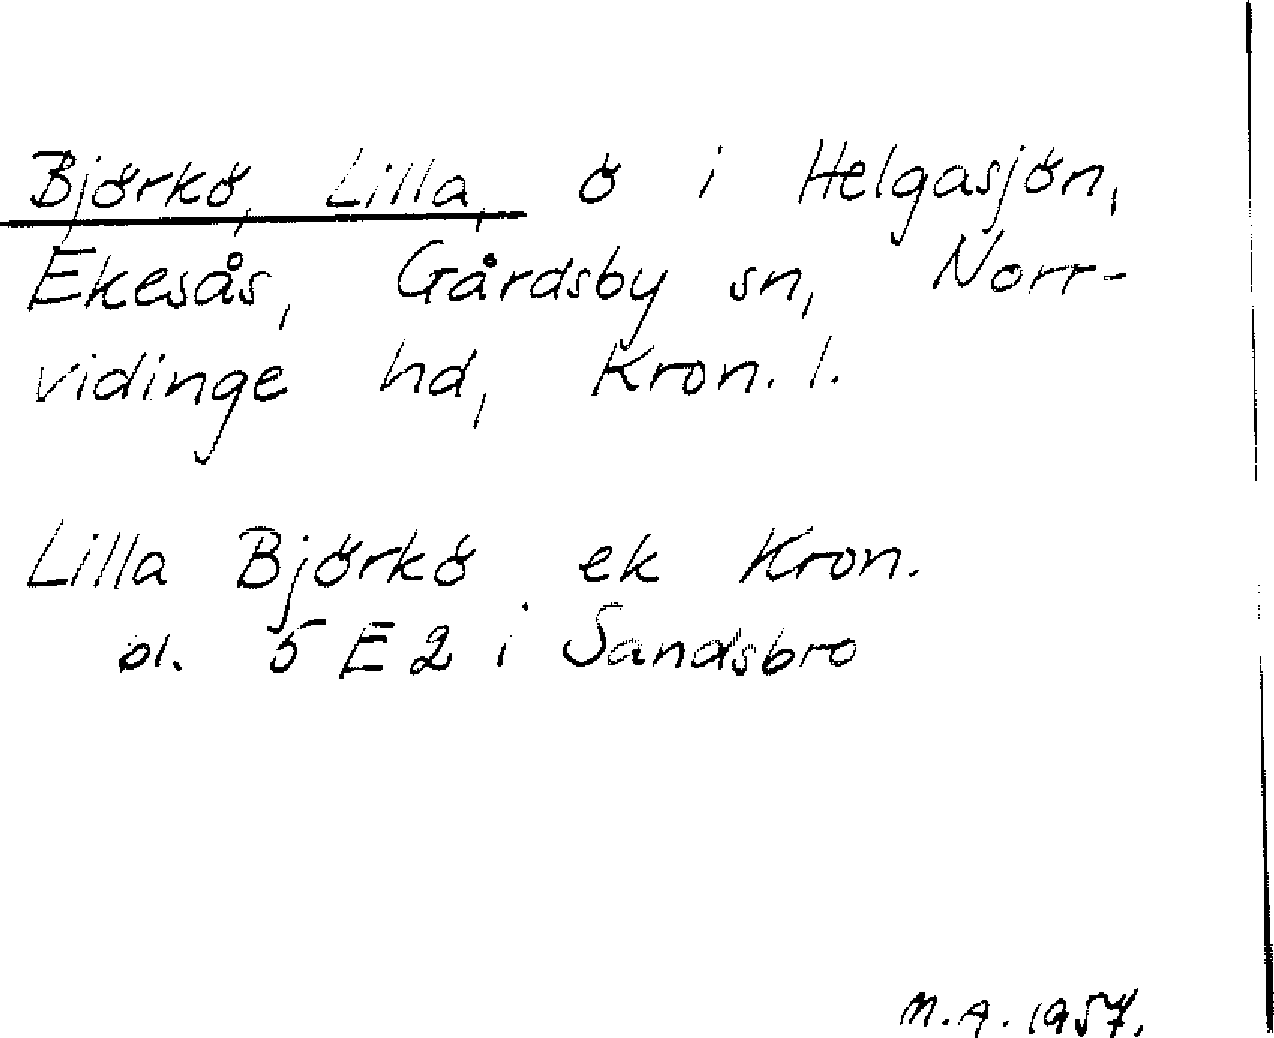 Björkö, Lilla, ö i Helgasjön,
Ekesås, Gårdsby sn, Norr-
vidinge hd, Kron. l.
Lilla Björkö ek Kron.
bl. 5 E 2 i Sandsbro
M.A. 1957.